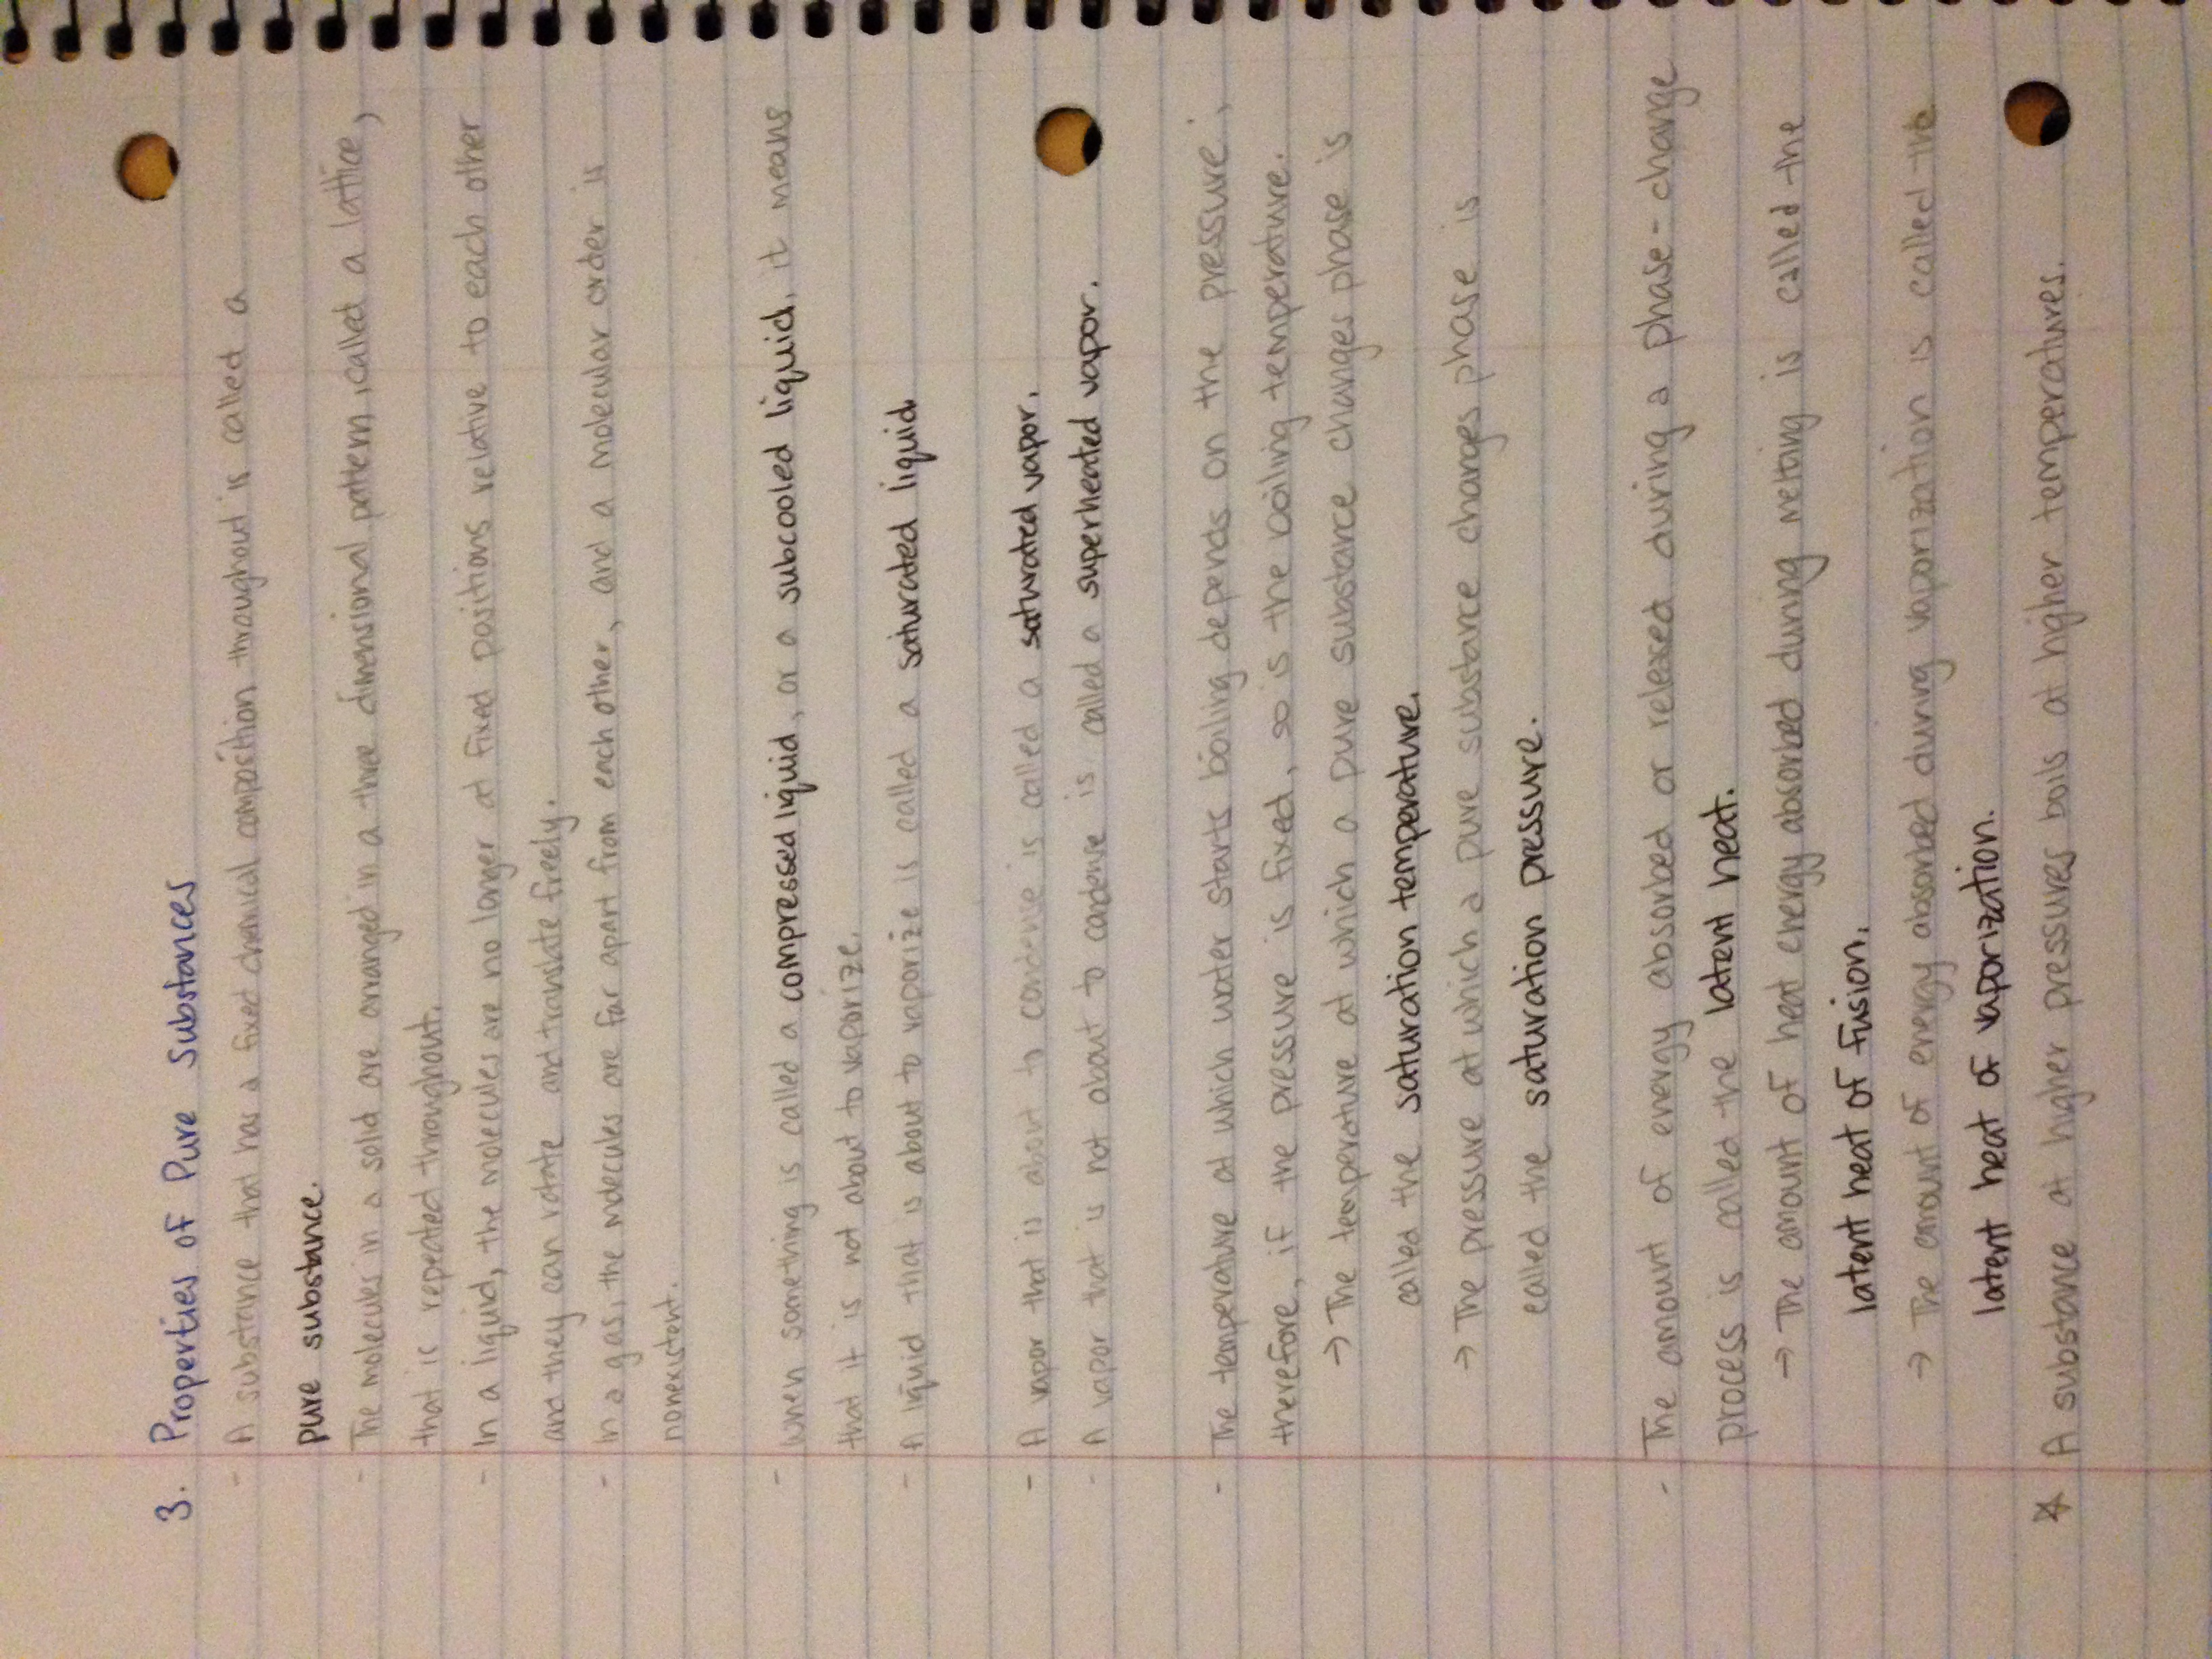 3. Properties of Pure Substances
- A substance that has a fixed chemical composition throughout is called a
pure substance.
- The molecules in a solid are arranged in a three dimensional pattern, called a lattice,
that is repeated throughout.
- In a liquid, the molecules are no longer at fixed positions relative to each other
and they can rotate and translate freely.
- In a gas, the molecules are far apart from each other, and a molecular order is
nonexistent.
- When something is called a compressed liquid, or a subcooled liquid, it means
that it is not about to vaporize.
- A liquid that is about to vaporize is called a saturated liquid
- A vapor that is about to condense is called a saturated vapor.
- A vapor that is not about to condense is called a superheated vapor.
- The temperature at which water starts boiling depends on the pressure;
therefore, if the pressure is fixed, so is the boiling temperature.
→ The temperature at which a pure substance changes phase is
called the saturation temperature.
→ The pressure at which a pure substance changes phase is
called the saturation pressure.
- The amount of energy absorbed or released during a phase-change
process is called the latent heat.
→ The amount of heat energy absorbed during melting is called the
latent heat of fusion.
→ The amount of energy absorbed during vaporization is called the
latent heat of vaporization.
* A substance at higher pressures boils at higher temperatures.